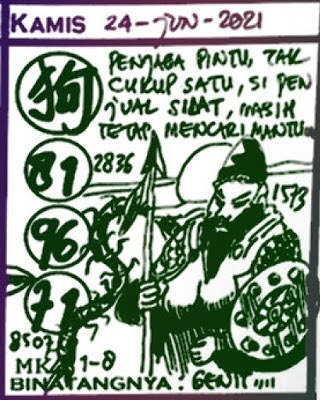 KAMIS 24-JUN-2021
狗
PENJAGA PINTU, TAK
CUKUP SATU, SI PEN
JUAL SILAT, MASIH
TETAP MENCARI MANTU
81
2836
96
1513
71
8507
MK 1-8
BINATANGNYA :